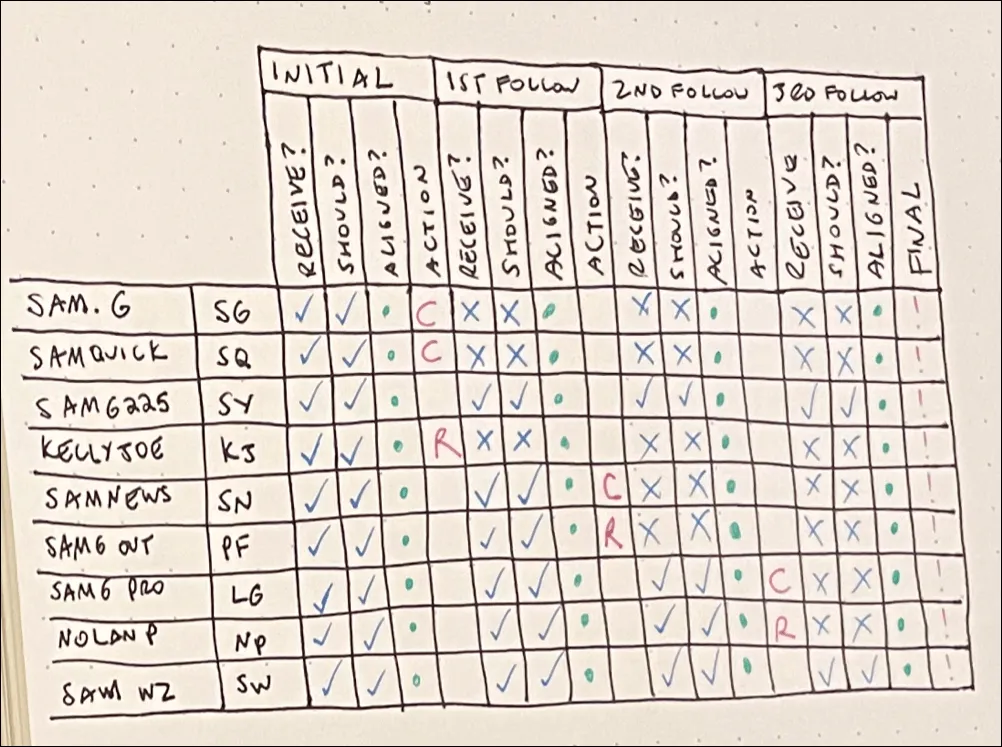 INITIAL 1ST FOLLOW 2ND FOLLOW 3RD FOLLOW
RECEIVE? SHOULD? ALIGNED? ACTION RECEIVE? SHOULD? ALIGNED? ACTION RECEIVE? SHOULD? ALIGNED? ACTION RECEIVE SHOULD? ALIGNED? FINAL
SAM.G SG ✓ ✓ • C X X • X X • X X • -
SAMQUICK SQ ✓ ✓ • C X X • X X • X X • -
SAMG225 SY ✓ ✓ • ✓ ✓ • ✓ ✓ • ✓ ✓ • -
KELLYJOE KJ ✓ ✓ • R X X • X X • X X • -
SAMNEWS SN ✓ ✓ • ✓ ✓ • C X X • X X • -
SAMG OUT PF ✓ ✓ • ✓ ✓ • R X X • X X • -
SAMG PRO LG ✓ ✓ • ✓ ✓ • ✓ ✓ • C X X • -
NOLAN P NP ✓ ✓ • ✓ ✓ • ✓ ✓ • R X X • -
SAM WZ SW ✓ ✓ • ✓ ✓ • ✓ ✓ • ✓ ✓ • -